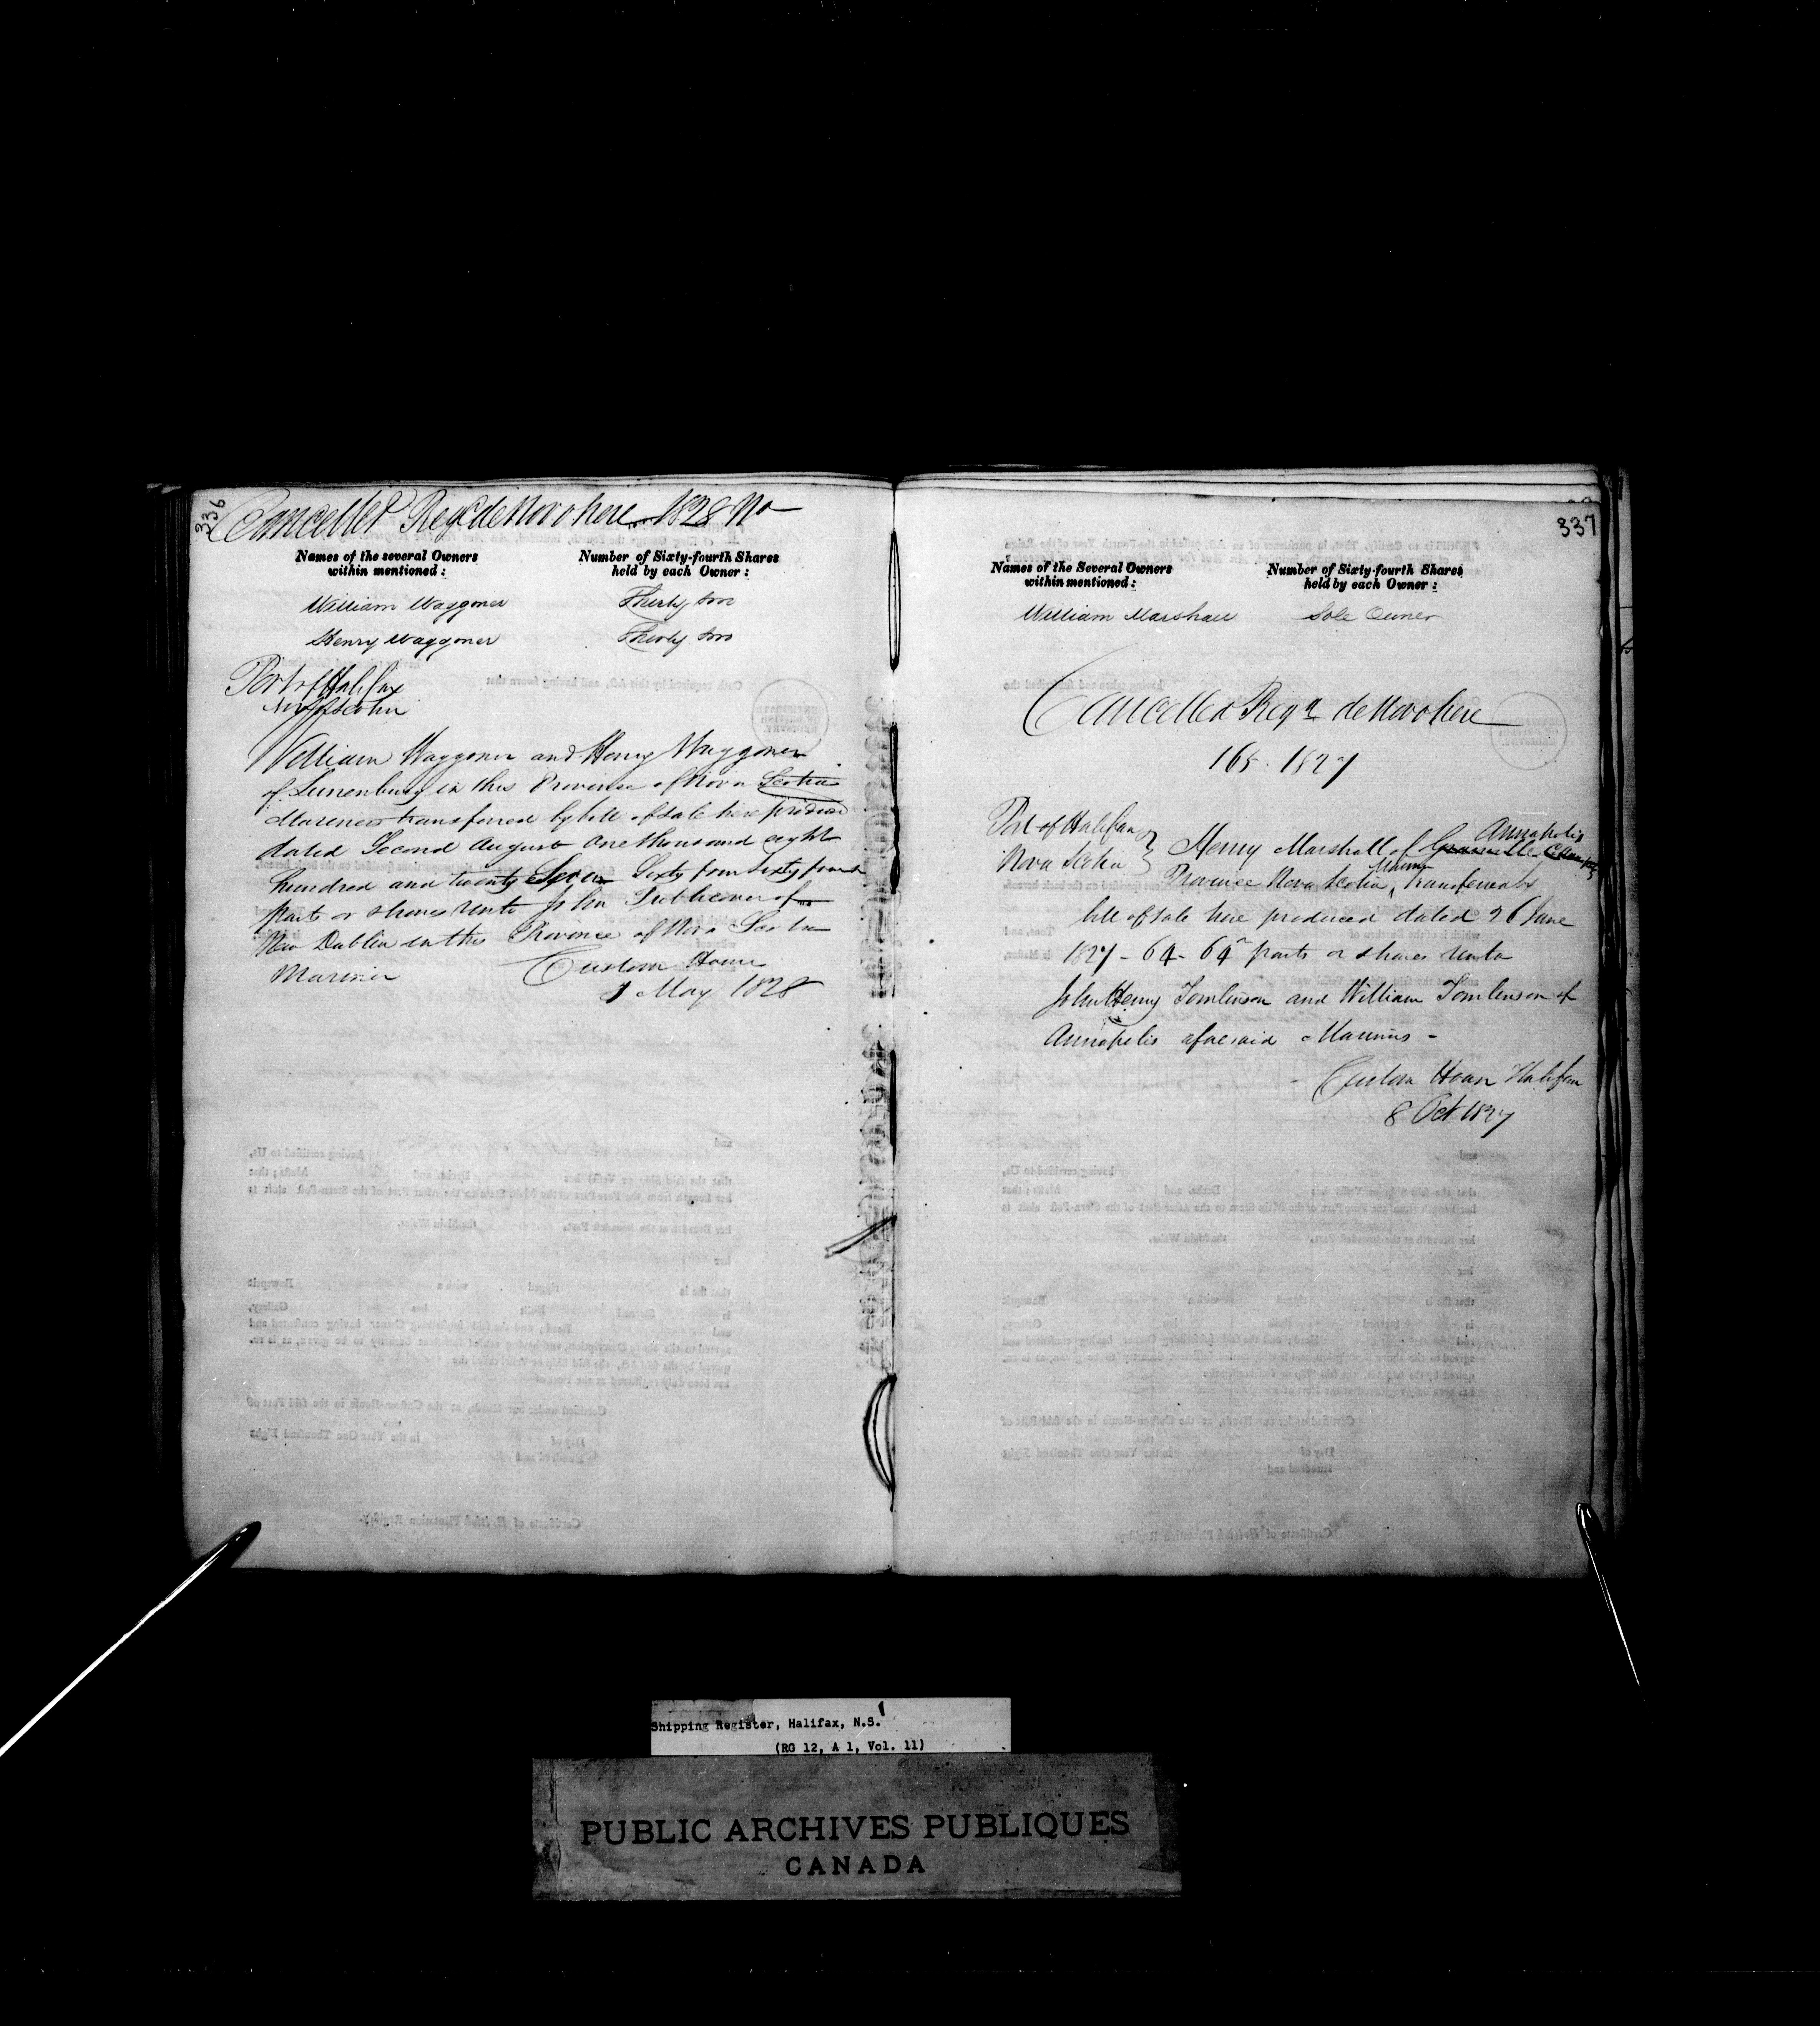 336
Cancelled Regd de Novo here 1828 No
Names of the several Owners
within mentioned:
Number of Sixty-fourth Shares
held by each Owner:
William Waggoner Thirty two
Henry Waggoner Thirty two
Port of Halifax
Nova Scotia
William Waggoner and Henry Waggoner
of Lunenburg in this Province of Nova Scotia
Mariners transferred by bill of sale here produced
dated Second August One thousand eight
hundred and twenty Seven Sixty four sixty fourth
parts or shares unto John Publicover of
New Dublin in this Province of Nova Scotia
Mariner Custom House
1 May 1828
337
Names of the Several Owners
within mentioned:
Number of Sixty-fourth Shares
held by each Owner:
William Marshall Sole Owner
Cancelled Regd de Novo here
165. 1827
Port of Halifax
Nova Scotia
Annapolis
Henry Marshall of Granville
Province Nova Scotia, transferred by
bill of sale here produced dated 26 June
1827 - 64 - 64th parts or shares unto
John Henry Tomlinson and William Tomlinson of
Annapolis aforesaid Mariners -
Custom House Halifax
8 Oct 1827
Shipping Register, Halifax, N.S.
(RG 12, A 1, Vol. 11)
PUBLIC ARCHIVES PUBLIQUES
CANADA